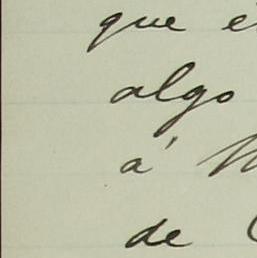 que
algo
á
de